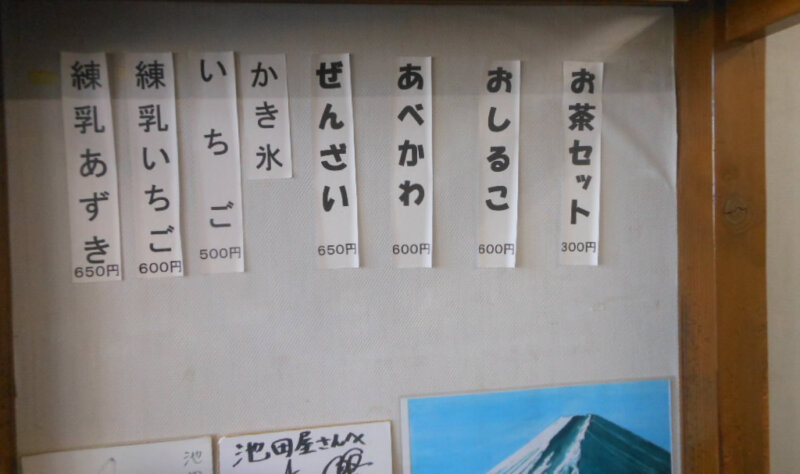 お茶セット
300円
おしるこ
600円
あべかわ
600円
ぜんざい
650円
かき氷
いちご
500円
練乳いちご
600円
練乳あずき
650円
池田屋さんへ
池